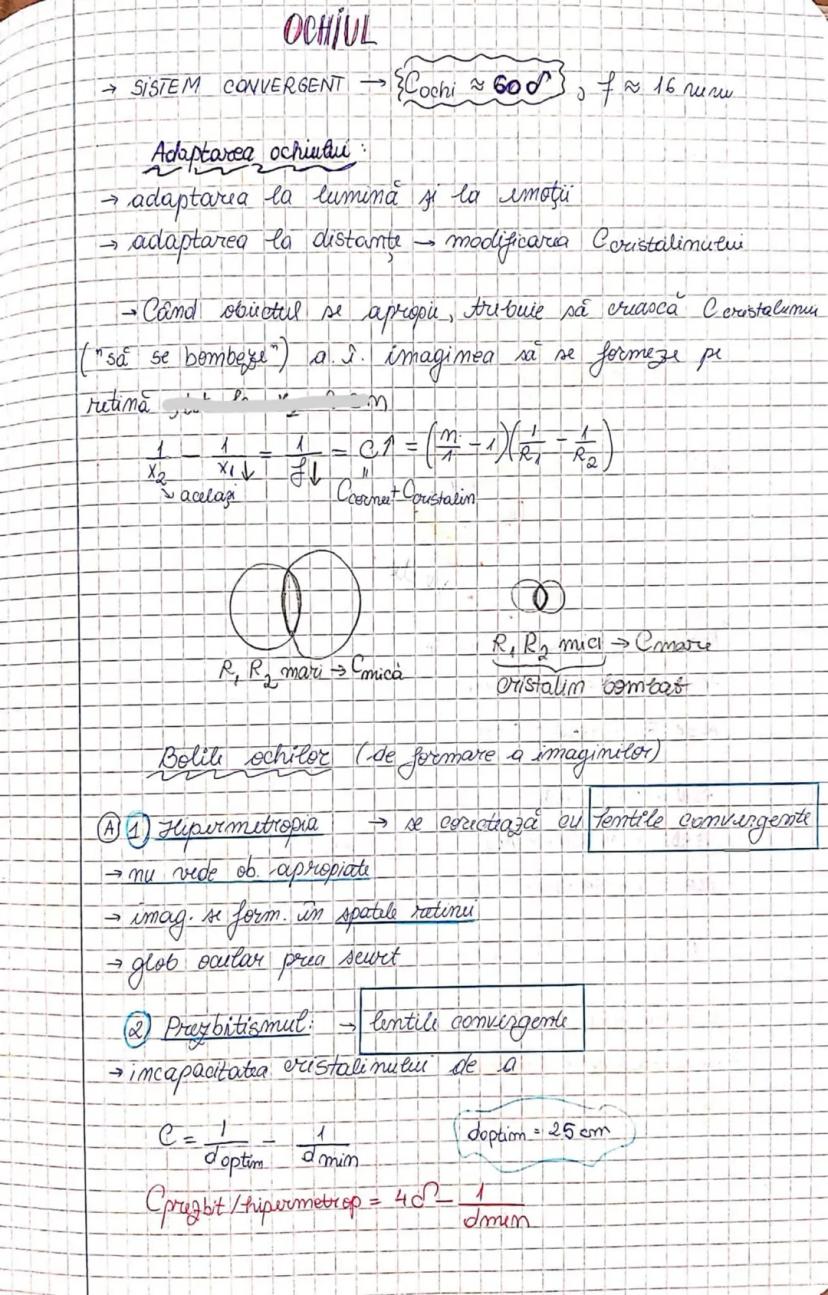 OCHIUL
→ SISTEM CONVERGENT → Cochi ≈ 60 δ , f ≈ 16 mm
Adaptarea ochiului:
→ adaptarea la lumină și la emoții
→ adaptarea la distanțe → modificarea Ccristalinului
→ Când obiectul se apropie, trebuie să crească Ccristalinului
("să se bombeze") a.î. imaginea să se formeze pe
retină
1/x₂ - 1/x₁↓ = 1/f↓ = C↑ = (n/1 - 1)(1/R₁ - 1/R₂)
↘ același Ccornee + Ccristalin
R₁ R₂ mari → Cmică
R₁ R₂ mici → Cmare
cristalin bombat
Bolile ochilor (de formare a imaginilor)
A 1 Hipermetropia → se corectează cu lentile convergente
→ nu vede ob. apropiate
→ imag. se form. în spatele retinei
→ glob ocular prea scurt
2 Prezbitismul: → lentile convergente
→ incapacitatea cristalinului de a
C = 1/doptim - 1/dmin
doptim = 25 cm
Cprezbit/hipermetrop = 4δ - 1/dmin